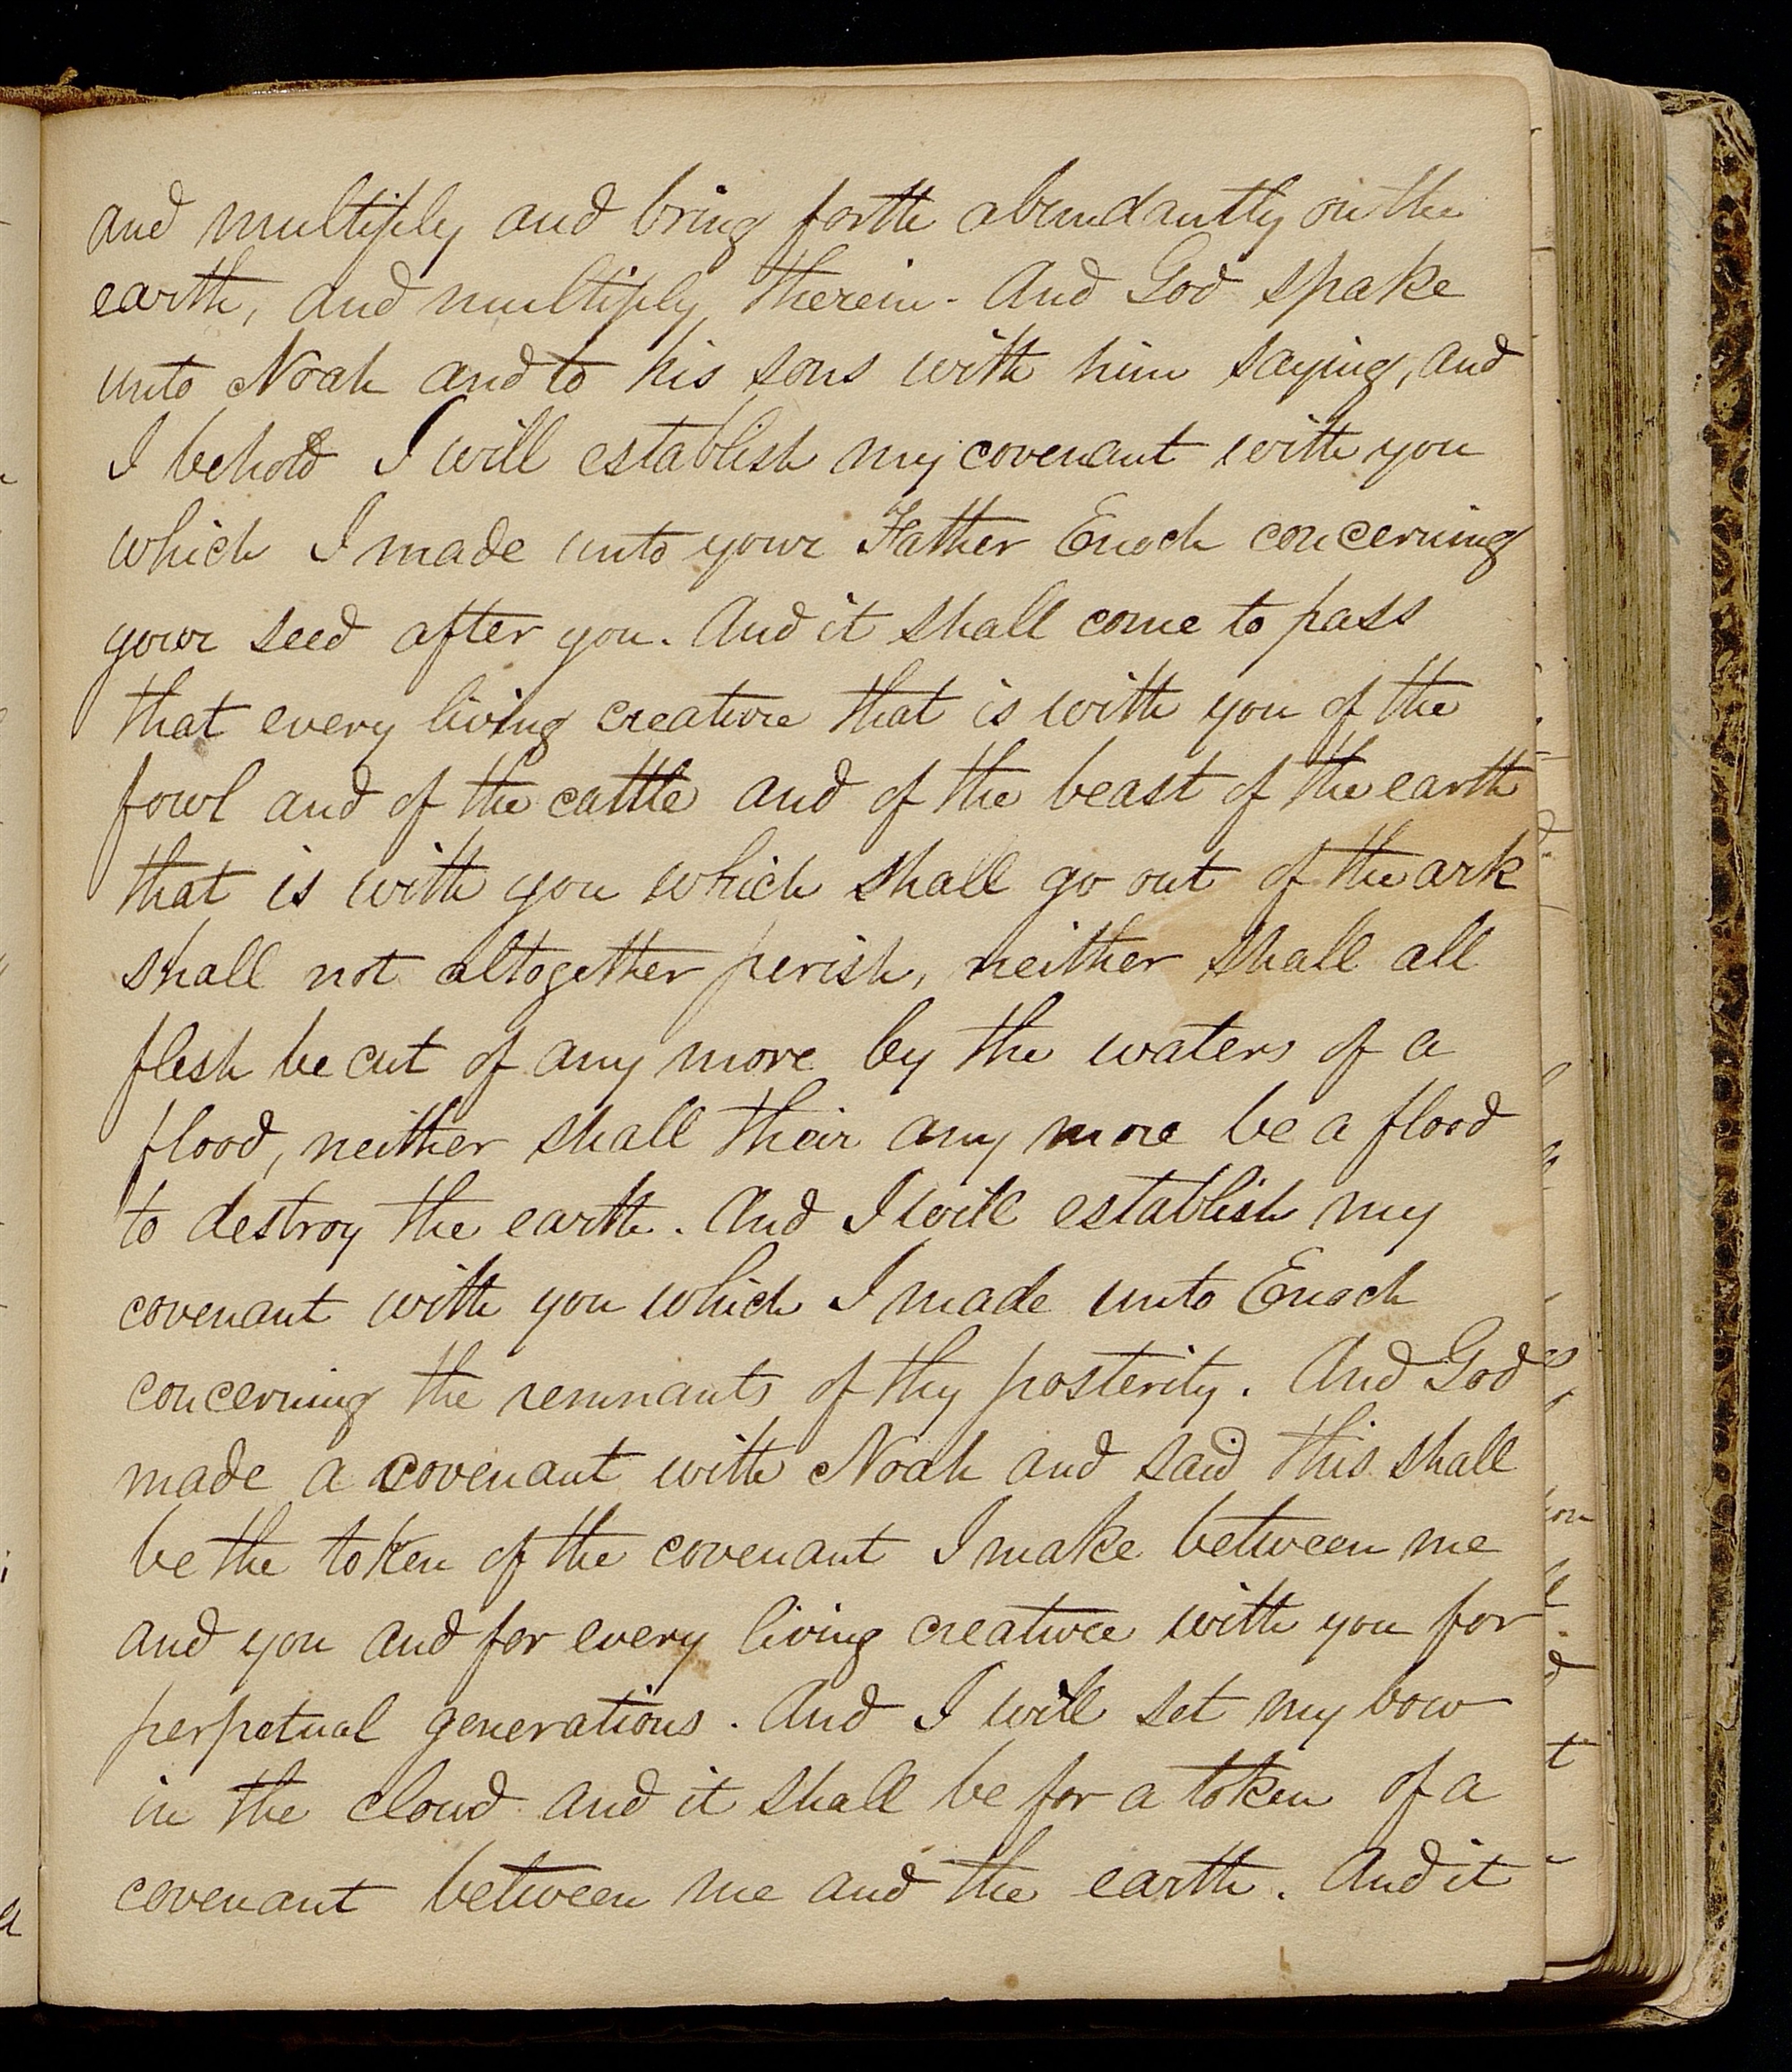 and multiply and bring forth abundantly on the
earth, and multiply therein. And God spake
unto Noah and to his sons with him saying, and
I behold I will establish my covenant with you
which I made unto your Father Enoch concerning
your seed after you. And it shall come to pass
that every living creature that is with you of the
fowl and of the cattle and of the beast of the earth
that is with you which shall go out of the ark
shall not altogether perish, neither shall all
flesh be cut of any more by the waters of a
flood, neither shall their any more be a flood
to destroy the earth. And I will establish my
covenant with you which I made unto Enoch
concerning the remnants of thy posterity. And God
made a covenant with Noah and said this shall
be the token of the covenant I make between me
and you and for every living creature with you for
perpetual generations. And I will set my bow
in the cloud and it shall be for a token of a
covenant between me and the earth. And it